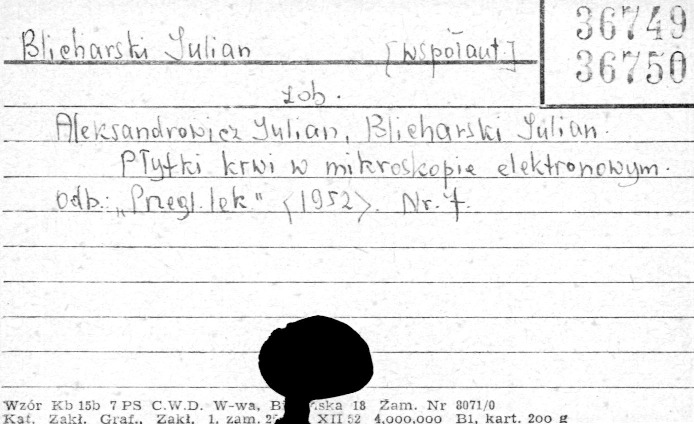 36749
36750
Blicharski Julian [współaut]
zob.
Aleksandrowicz Julian, Blicharski Julian.
Płytki krwi w mikroskopie elektronowym.
Odb.: „Przegl. lek" <1952>. Nr. 7.
Wzór Kb 15b 7 PS C.W.D. W-wa, ska 18 Zam. Nr 8071/0
Kat. Zakł. Graf., Zakł. 1. zam. XII 52 4,000,000 B1, kart. 200 g